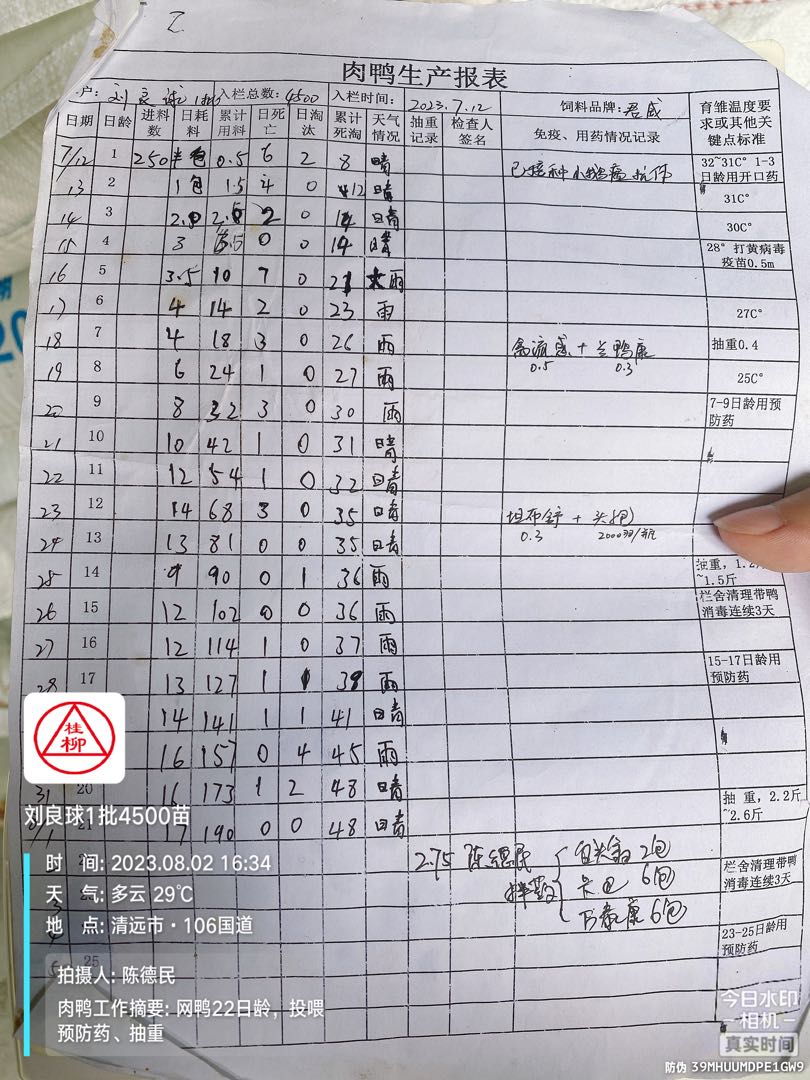 肉鸭生产报表
户: 刘良球1批 入栏总数: 4500 入栏时间: 2023.7.12 饲料品牌: 君威 育雏温度要求或其他关键点标准
日期 日龄 进料数 日耗料 累计用料 日死亡 日淘汰 累计死淘 天气情况 抽重记录 检查人签名 免疫、用药情况记录
7/12 1 250 半包 0.5 6 2 8 晴 已接种小鹅瘟抗体 32~31C° 1-3日龄用开口药
13 2 1包 1.5 4 0 12 晴 31C°
14 3 2.0 2 0 14 晴 30C°
15 4 3 0 0 14 晴 28° 打黄病毒疫苗0.5m
16 5 3.5 10 7 0 21 雨
17 6 4 14 2 0 23 雨 27C°
18 7 4 18 3 0 26 雨 禽流感 + 兰鸭康 抽重0.4
0.5 0.3
19 8 6 24 1 0 27 雨 25C°
20 9 8 32 3 0 30 雨 7-9日龄用预防药
21 10 10 42 1 0 31 晴
22 11 12 54 1 0 32 晴
23 12 14 68 3 0 35 晴 + 头孢
0.3 2000羽/瓶
24 13 13 81 0 0 35 晴
25 14 9 90 0 1 36 雨 抽重，1.2 ~1.5斤
26 15 12 102 0 0 36 雨 栏舍清理带鸭消毒连续3天
27 16 12 114 1 0 37 雨
28 17 13 127 1 1 39 雨 15-17日龄用预防药
14 141 1 1 41 晴
16 157 0 4 45 雨
31 20 16 173 1 2 48 晴 抽 重，2.2斤~2.6斤
8/1 21 17 190 0 0 48 晴
2.75 2包
6包 栏舍清理带鸭消毒连续3天
6包
25 23-25日龄用预防药
桂柳
刘良球1批4500苗
时 间: 2023.08.02 16:34
天 气: 多云 29℃
地 点: 清远市·106国道
拍摄人: 陈德民
肉鸭工作摘要: 网鸭22日龄，投喂
预防药、抽重
今日水印
相机
真实时间
防伪 39MHUUMDPE1GW9